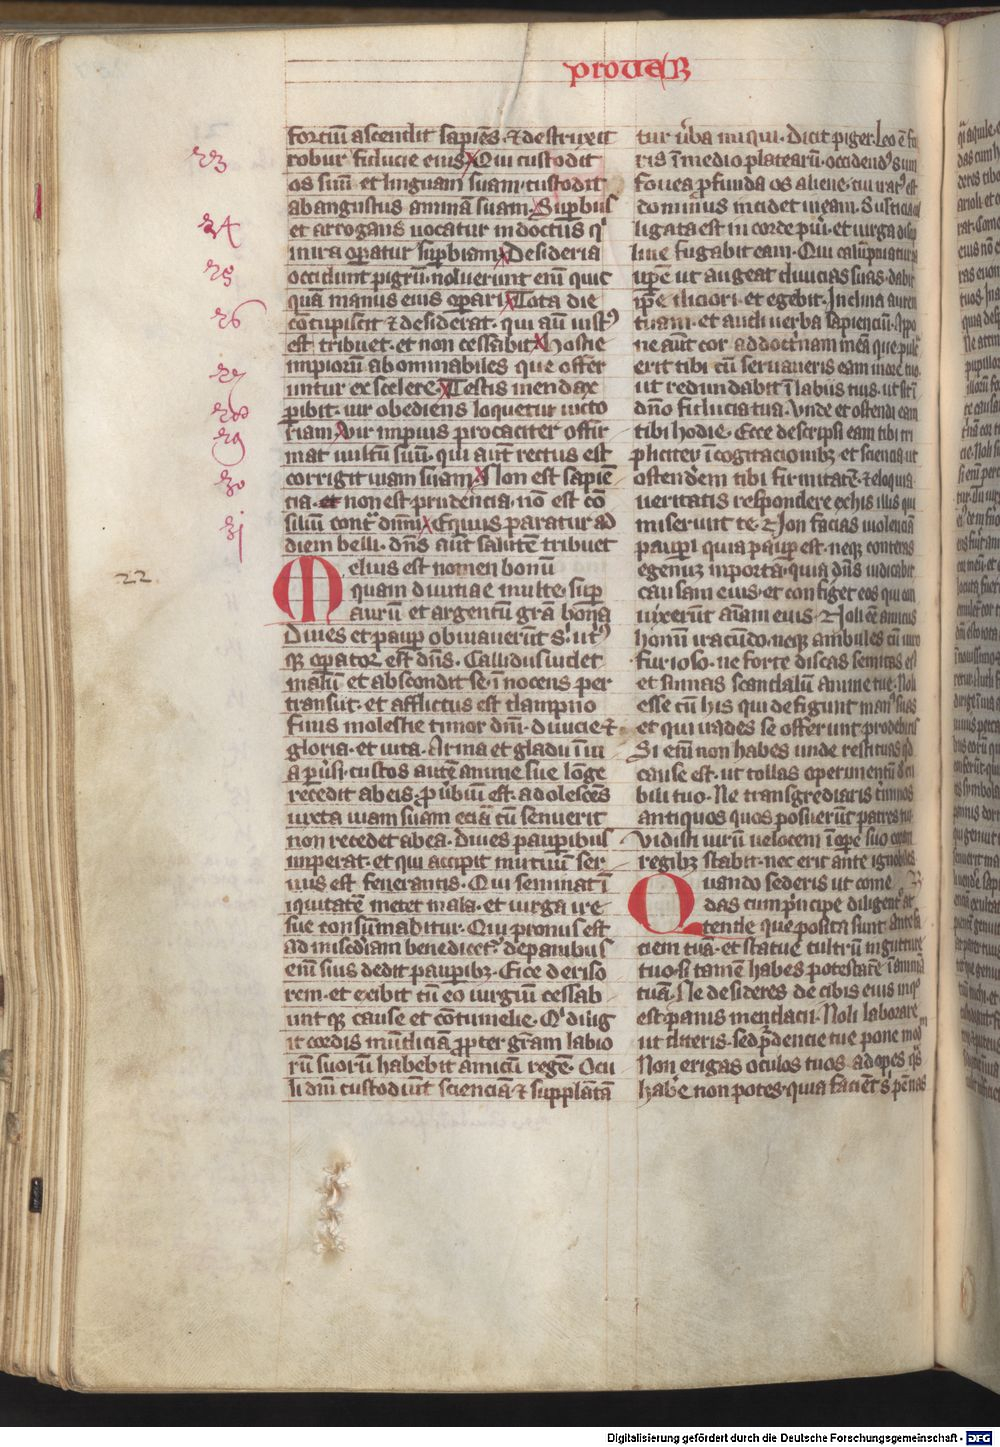 proverB
fortiu᷑ ascendit sapie᷑s · ⁊ destruxit
robur fiducie eius Qui custodit
os suu᷑ et linguam suam · custodit
ab angustiis anima᷑ suam · Sup᷑bus
et arrogans vocatur indoctus q᷑
in ira op᷑atur sup᷑biam Desideria
occidunt pigru᷑ · noluerunt eni᷑ quic
qua᷑ manus eius op᷑ari Tota die
co᷑cupiscit ⁊ desiderat · qui au᷑ iustꝰ
est tribuet · et non cessabit Hostie
impioru᷑ abominabiles que offer
untur ex scelere · Testis mendax
p᷑ibit · vir obediens loquetur victo
riam Vir impius procaciter offir
mat vultu᷑ suu᷑ · qui aut᷑ rectus est
corrigit viam suam Non est sapie᷑
cia · non est prudencia · no᷑ est co᷑
siliu᷑ cont᷑ dm᷑ni Equus paratur ad
diem belli · dn᷑s aut᷑ salute᷑ tribuet
Melius est nomen bonu
quam divitiae multe · sup᷑
auru᷑ et argentu᷑ gra᷑ bona
Dives et paup᷑ obviaveru᷑t s᷑ · utꝰ
qꝫ op᷑ator est dn᷑s · Callidus videt
malu᷑ et abscondit se · i᷑nocens per
transiit · et afflictus est dampno
Finis modestie timor dm᷑ · divicie ⁊
gloria · et vita · Arma et gladii i᷑ vi
a p᷑v᷑si · custos aute᷑ anime sue lo᷑ge
recedit ab eis · prov᷑biu᷑ est · adolesce᷑s
iuxta viam suam ecia᷑ cu᷑ senuerit
non recedet ab ea · Dives paup᷑ibus
imperat · et qui accipit mutuu᷑ ser
vus est fenerantis · Qui seminat i᷑
iquitate᷑ metet mala · et virga ire
sue consu᷑mabitur · Qui pronus est
ad mis᷑cdiam benedicet᷑ · de panibus
eni᷑ suis dedit paup᷑ibꝫ · Eice deriso
rem · et exibit cu᷑ eo iurgiu᷑ cessab
unt qꝫ cause et co᷑tumelie · Q᷑ dilig
it cordis mu᷑diciam p᷑pter gra᷑m labio
ru᷑ suoru᷑ habebit amicu᷑ rege᷑ · Ocu
li dm᷑ custodiu᷑t sciencia᷑ ⁊ suppla᷑ta᷑
tur v᷑ba iniqui · Dicit piger · Leo e᷑ fo
ris i᷑ medio plateary᷑ · occidendꝰ sum
Fovea p᷑funda os aliene · cui iratꝰ est
dominus incidet in eam · Stulticia col
ligata est in corde pu᷑i · et virga discip
line fugabit eam · Qui calu᷑pniatur pa
up᷑e ut augeat divicias suas · dabit
ip᷑e diciori · et egebit · Inclina aurem
tuam · et audi verba sapienciu᷑ · Appo
ne aut᷑ cor ad doct᷑inam mea᷑ que pulc᷑
erit tibi cu᷑ servaveris eam
ut redundabit i᷑ labiis tuis · ut sit i᷑
dn᷑o fiducia tua · Unde et ostendi eam
tibi hodie · Ecce descripsi eam tibi tri
pliciter i᷑ cogitacionibꝫ et sciencia ut
ostendere᷑ tibi firmitate᷑ · ⁊ eloquia
veritatis respondere ex his illis qui
miserunt te · Non facias violencia᷑
paup᷑i quia paup᷑ est · neqꝫ conteras
egenu᷑ in porta᷑ · quia dn᷑s iudicabit
causam eius · et configet eos qui con
fixeru᷑t ai᷑am eius · Noli ee᷑ amicus
homi᷑i iracu᷑do · neqꝫ ambules cu᷑ viro
furioso · ne forte discas semitas eiꝰ
et sumas scandalu᷑ anime tue · Noli
esse cu᷑ his qui defigunt manꝰ suas
et qui vades se offerunt · prodebitis
Si eni᷑ non habes unde restituas qd᷑
cause est · ut tollas operimentu᷑ d᷑ cu
bili tuo · Ne transgrediaris t᷑minos
antiquos quos posueru᷑t patres tui
Vidisti viru᷑ velocem i᷑ op᷑e suo coram
regibꝫ stabit · nec erit ante ignobiles
Quando sederis ut come
das cum p᷑ncipe diligent᷑ at
tende que posita sunt ante fa
ciem tua᷑ · et statue cultru᷑ in gutture
tuo · si tame᷑ habes potestate᷑ i᷑ a᷑i᷑ma᷑
tua᷑ · Ne desideres de cibis eius i᷑ qꝰ
est panis mendacii · Noli laborare
ut diteris · sed p᷑dencie tue pone mod᷑
Non erigas oculos tuos ad opes q᷑s
hab᷑e non potes · quia facient s᷑ pe᷑nas
23
24
25
26
27
28
29
30
31
22
Digitalisierung gefördert durch die Deutsche Forschungsgemeinschaft - DFG